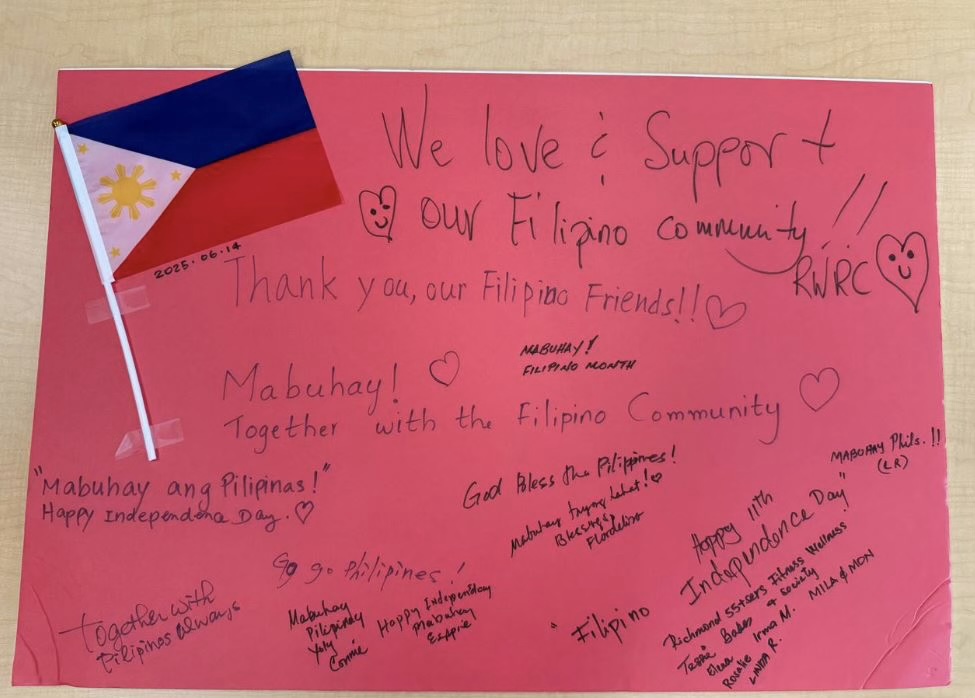 We love & Support
our Filipino community!!
RWRC
2025.06.14
Thank you, our Filipino Friends!!
MABUHAY!
FILIPINO MONTH
Mabuhay!
Together with the Filipino Community
MABUHAY Phils.!!
(LR)
"Mabuhay ang Pilipinas!"
Happy Independence Day.
God Bless the Pilippines!
Mabuhay tayong Lahat!
Blessings,
Flordeliza
Go go Philipines!
Together with
Pilipinas always
Mabuhay
Pilipinas
Yoly
Connie
Happy Independay
Mabuhay
"Filipino
Happy 11th
Independence Day"
Richmond 55+sers Fitness Wellness
& Society!
Tessie
Elena Irma M. MILA & MON
Rosalie
LINDA R.